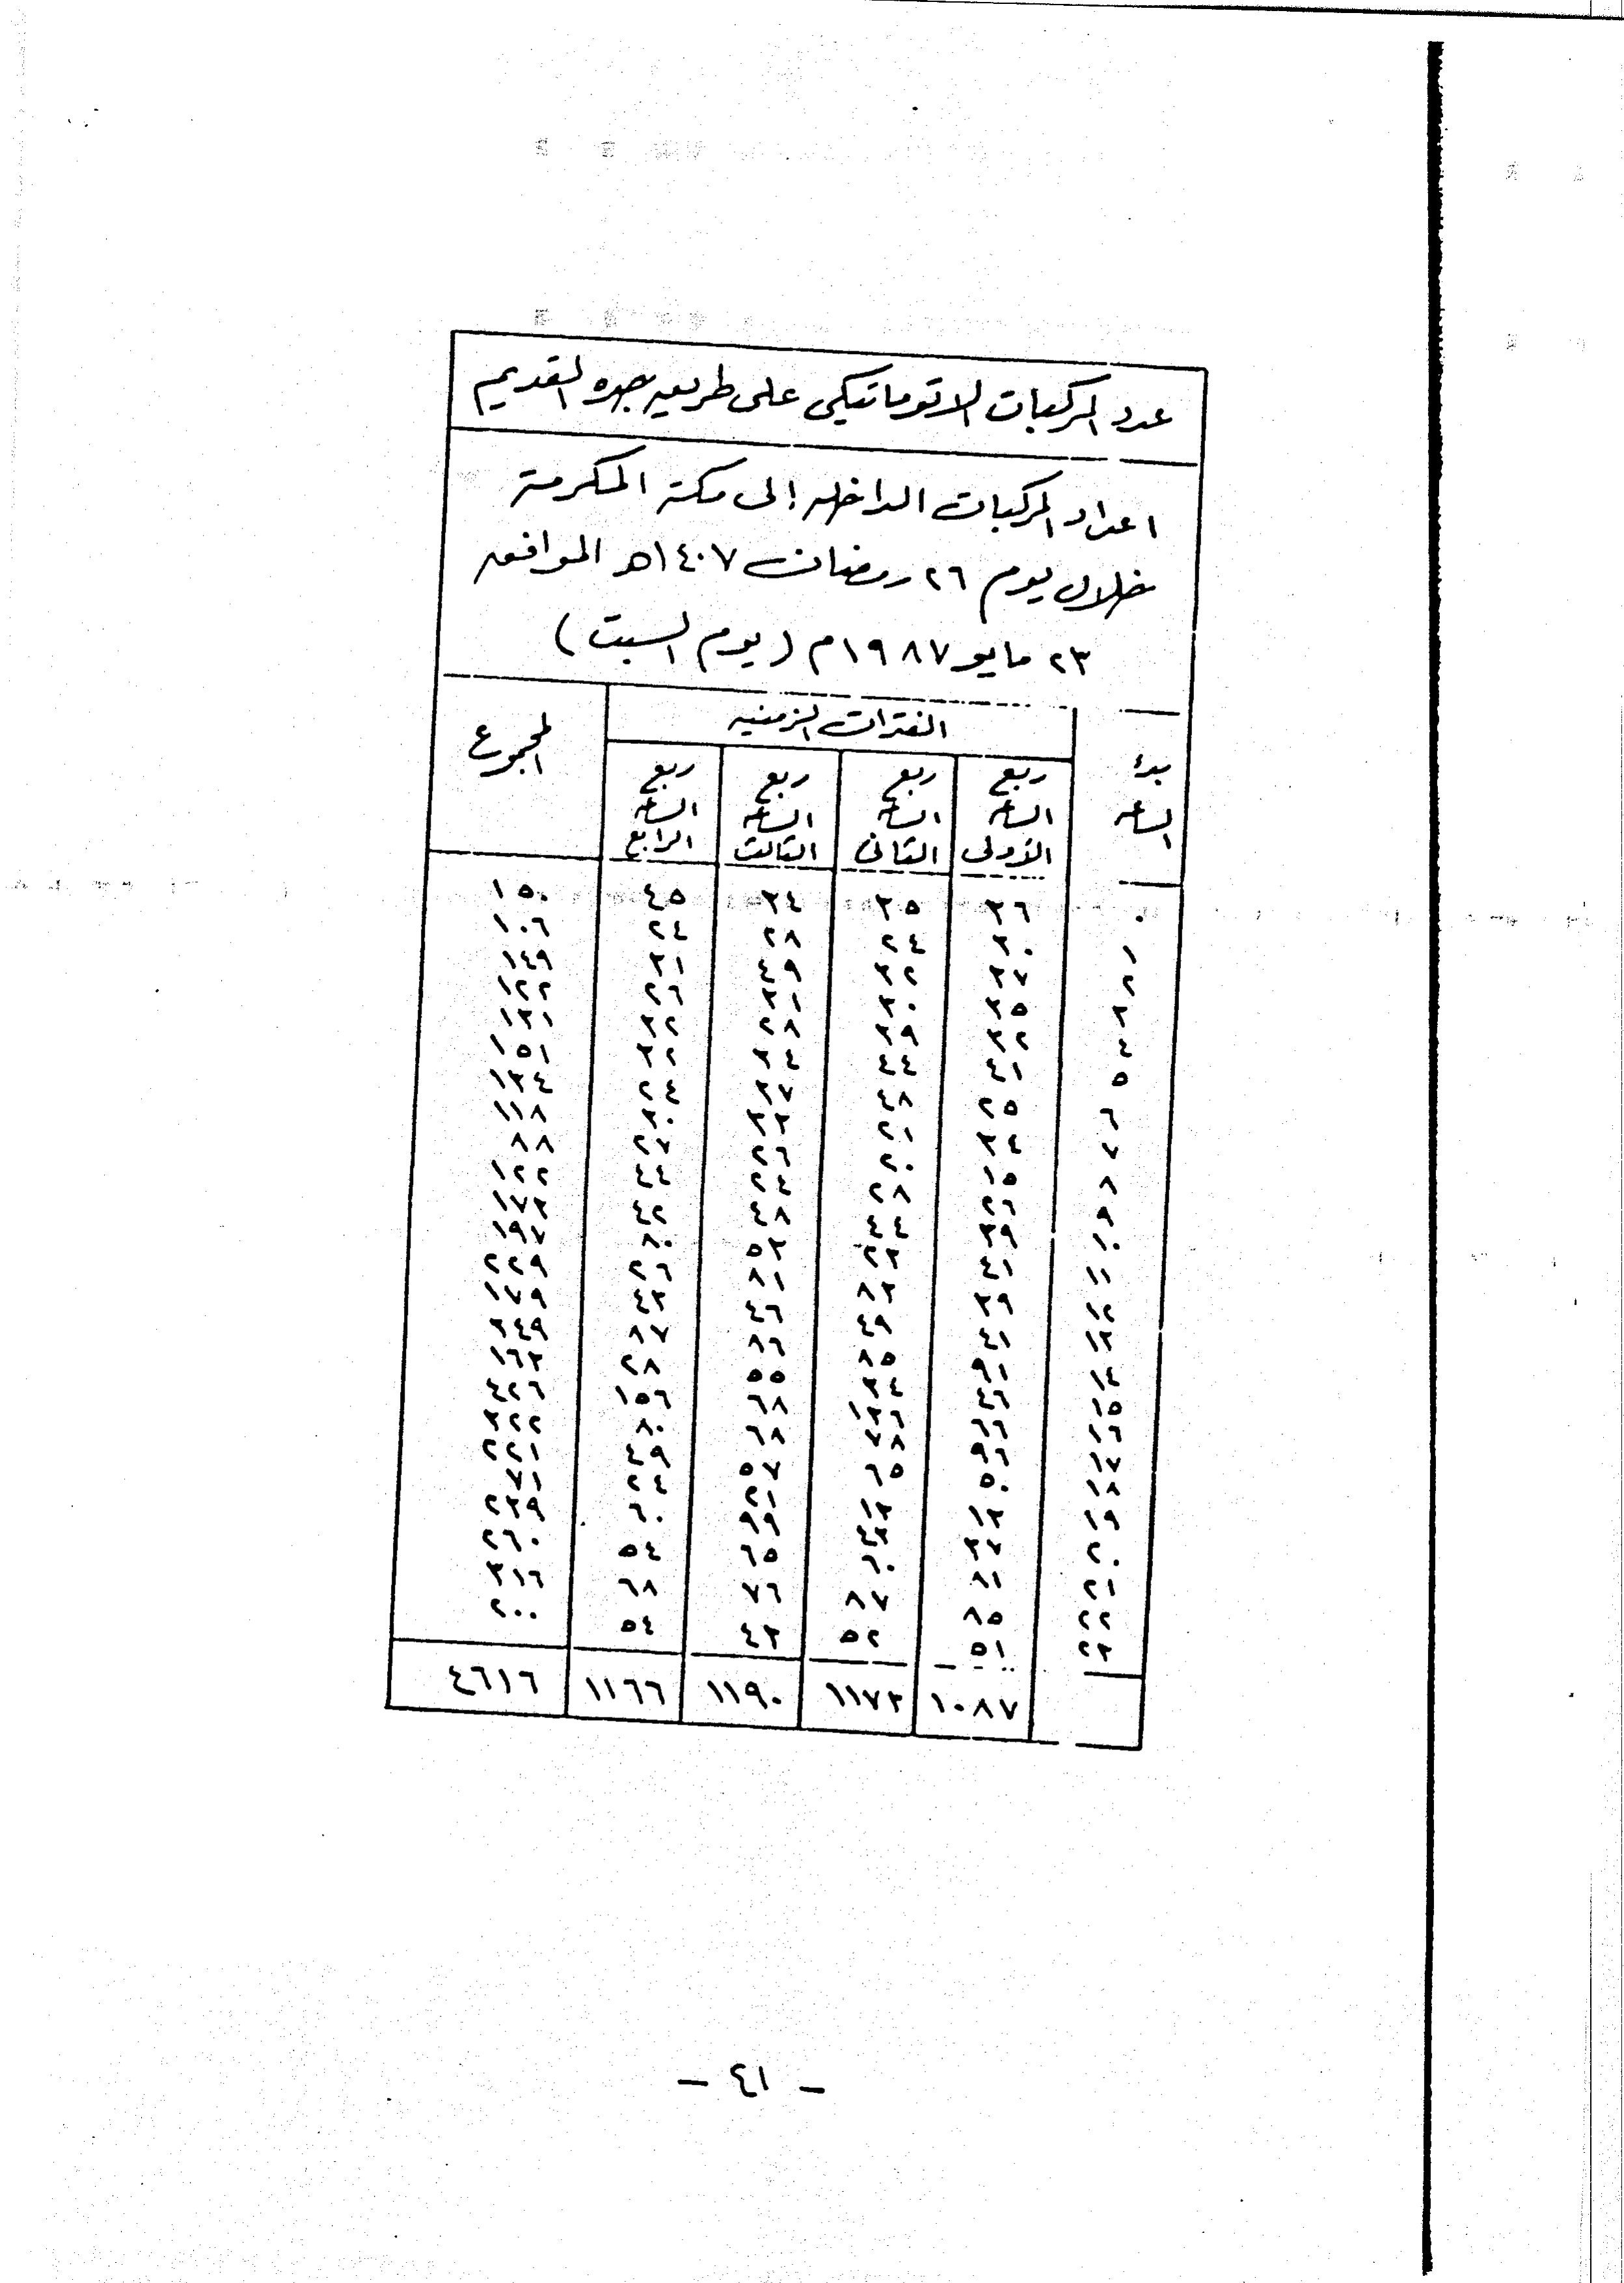 عدد المركبات الاتوماتيكى على طريق جده القديم
اعداد المركبات الداخله إلى مكة المكرمة
خلال يوم ٢٦ رمضان ١٤٠٧هـ الموافق
٢٣ مايو ١٩٨٧م (يوم السبت)
بدء الساعه
الفترات الزمنيه
المجموع
ربع الساعه الأولى
ربع الساعه الثانى
ربع الساعه الثالث
ربع الساعه الرابع
٠ ٣٦ ٣٥ ٣٤ ٤٥ ١٥٠
١ ٣٠ ٢٤ ٢٨ ٢٤ ١٠٦
٢ ٣٧ ٣٢ ٤٩ ٣١ ١٤٩
٣ ٣٥ ٣٠ ٣١ ٢٦ ١٢٢
٤ ٣٢ ٣٩ ٢٨ ٣٢ ١٣١
٥ ٤١ ٤٤ ٣٤ ٣٢ ١٥١
٦ ٢٥ ٤٨ ٣٧ ٢٤ ١٣٤
٧ ٣٤ ٢١ ٣٣ ٣٠ ١١٨
٨ ١٥ ٢٠ ٢٦ ٢٧ ٨٨
٩ ٢٦ ٢٨ ٢٤ ٤٤ ١٢٢
١٠ ٣٩ ٤٤ ٤٨ ٤٢ ١٧٣
١١ ٤١ ٢٣ ٥٣ ٨٠ ١٩٧
١٢ ٣٩ ٨٣ ٨١ ٢٦ ٢٢٩
١٣ ٤١ ٤٩ ٤٦ ٤٣ ١٧٩
١٤ ٩١ ٨٥ ٨٦ ٨٧ ٣٤٩
١٥ ٤٦ ٣٤ ٥٥ ٢٨ ١٦٣
١٦ ٦٦ ١٣٦ ٦٨ ١٥٦ ٤٢٦
١٧ ٩٦ ٧٨ ٦٨ ٨٠ ٣٢٢
١٨ ٥٠ ٦٥ ٥٧ ٤٩ ٢٢١
١٩ ١٣ ١٣ ٢١ ٢٤ ٧١
٢٠ ٣٧ ٤٣ ٩٩ ٦٠ ٢٣٩
٢١ ٨١ ٦٠ ٦٥ ٥٤ ٢٦٠
٢٢ ٨٥ ٨٧ ٧٦ ٦٨ ٣١٦
٢٣ ٥١ ٥٢ ٤٣ ٥٤ ٢٠٠
١٠٨٧ ١١٧٣ ١١٩٠ ١١٦٦ ٤٦١٦
- ٤١ -